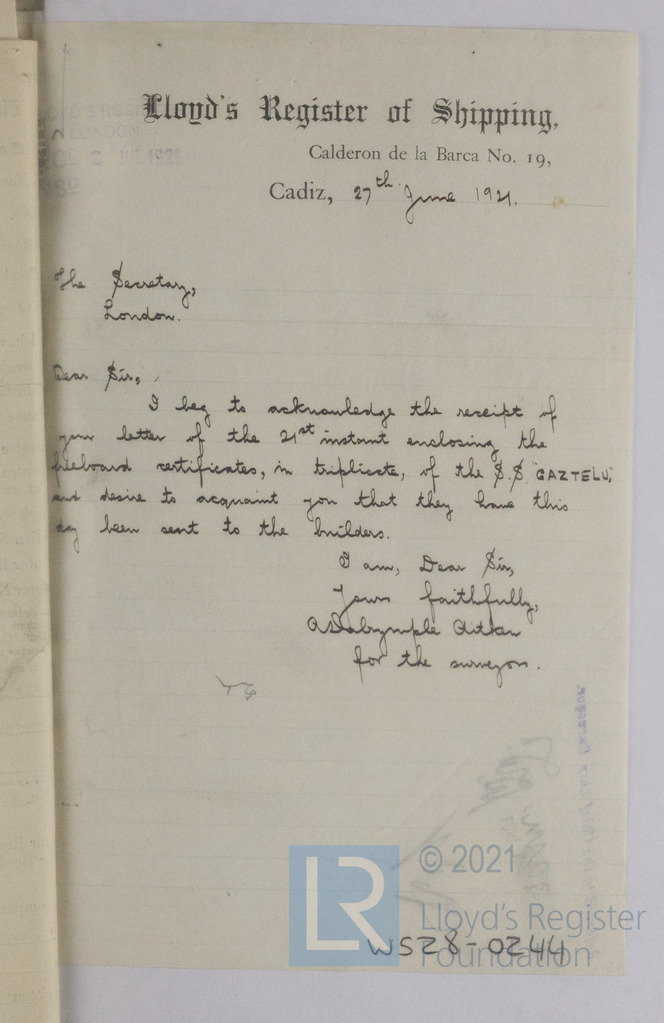 Lloyd's Register of Shipping,
LONDON
1921
Calderon de la Barca No. 19,
Cadiz, 27th June 1921.
The Secretary,
London.
Dear Sir,
I beg to acknowledge the receipt of
your letter of the 21st instant enclosing the
freeboard certificates, in triplicate, of the S.S. "GAZTELU,"
and desire to acquaint you that they have this
day been sent to the builders.
I am, Dear Sir,
Yours faithfully,
A Dalrymple Aitken
for the surveyor.
LR
© 2021
Lloyd's Register
Foundation
WS28-0244